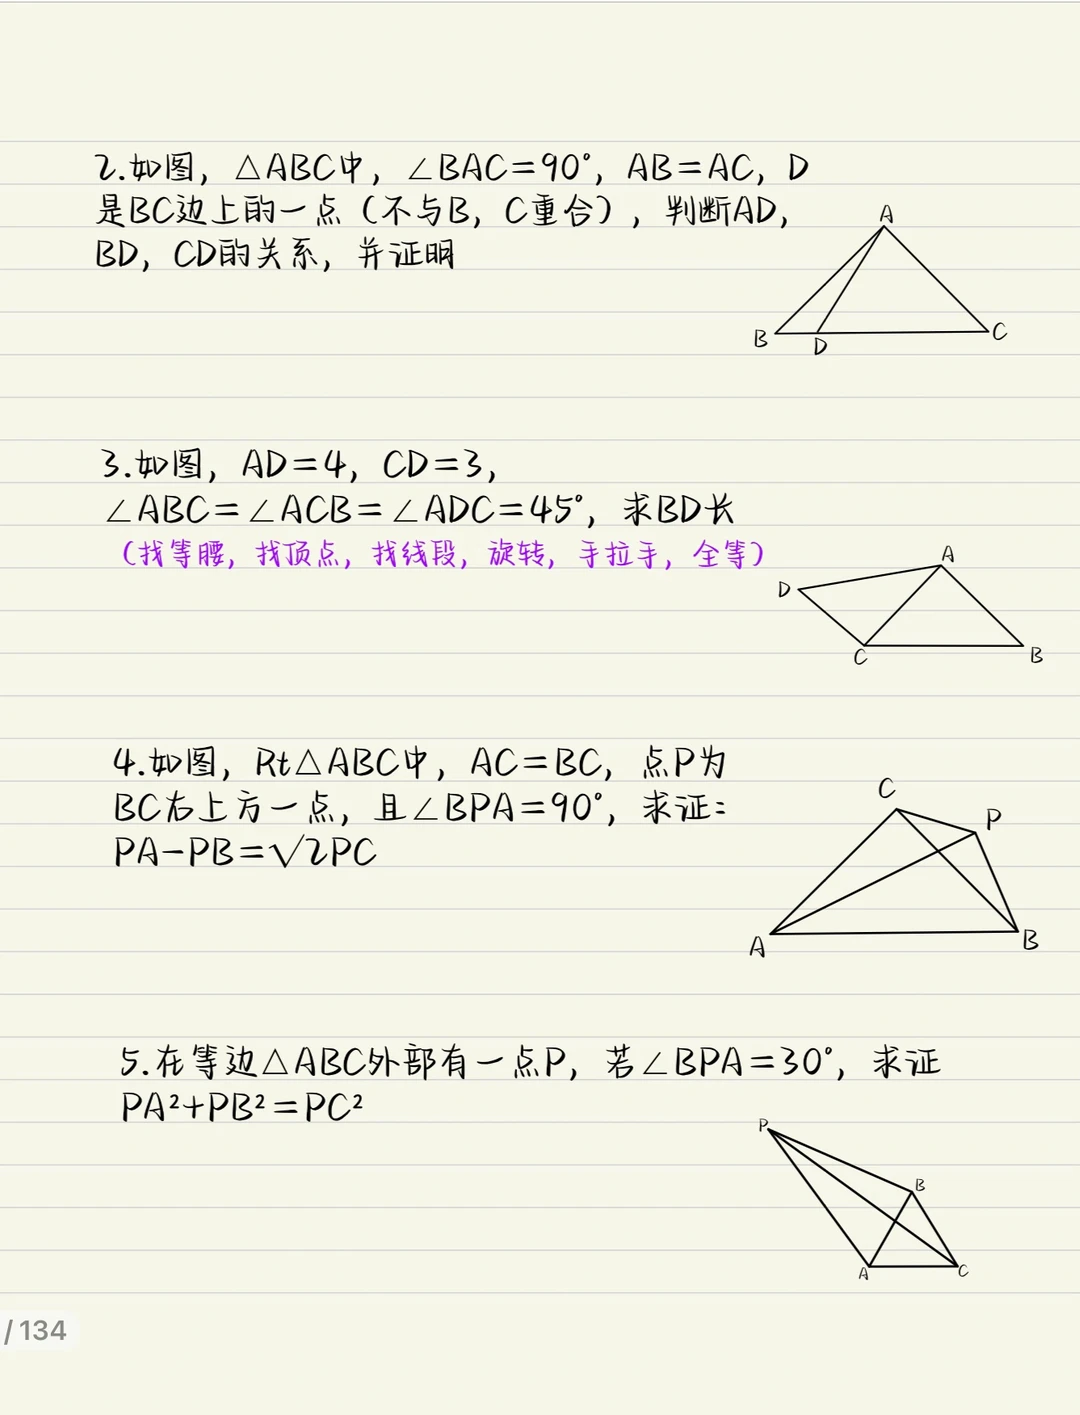 2.如图，△ABC中，∠BAC=90°，AB=AC，D
是BC边上的一点（不与B，C重合），判断AD，
BD，CD的关系，并证明
A
B
D
C
3.如图，AD=4，CD=3，
∠ABC=∠ACB=∠ADC=45°，求BD长
（找等腰，找顶点，找线段，旋转，手拉手，全等）
A
D
C
B
4.如图，Rt△ABC中，AC=BC，点P为
BC右上方一点，且∠BPA=90°，求证：
PA-PB=√2PC
C
P
A
B
5.在等边△ABC外部有一点P，若∠BPA=30°，求证
PA²+PB²=PC²
P
B
A
C
/134